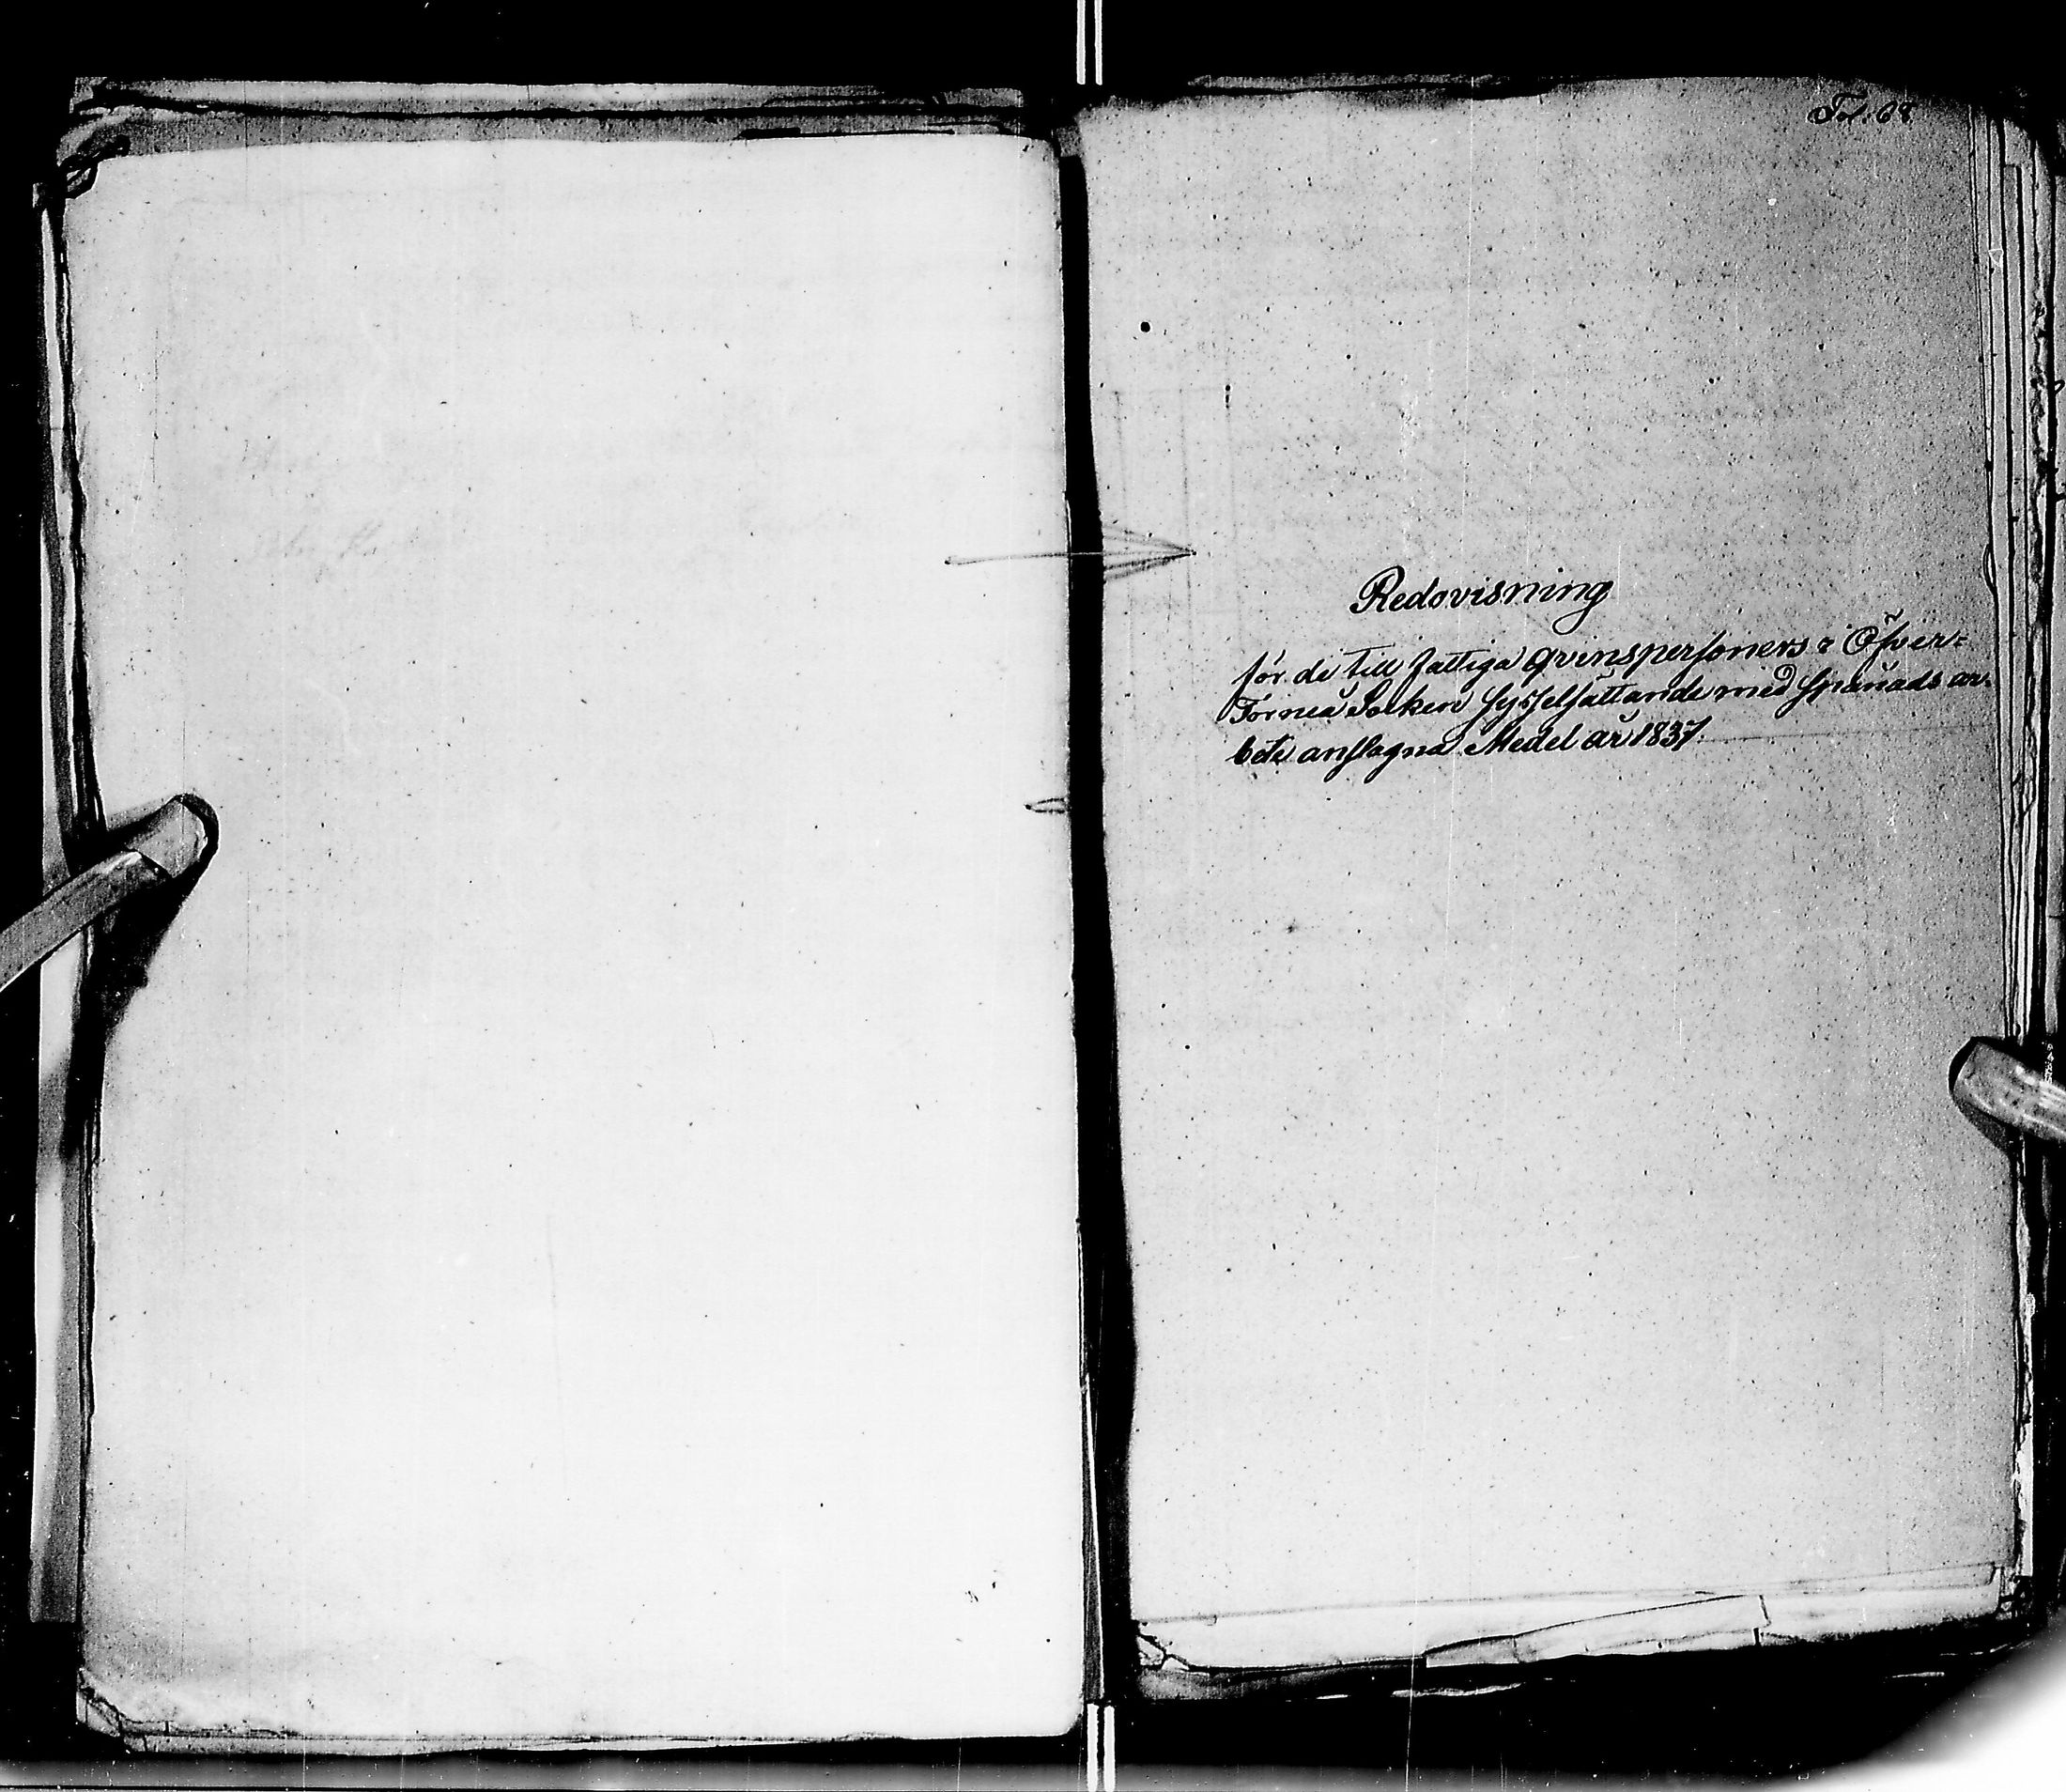 Fol. 68
Redovisning
för de till fattiga qvinspersoners i Öfver-
Torneå Socken sysselsättande med spånads ar-
bete anslagna Medel år 1837.